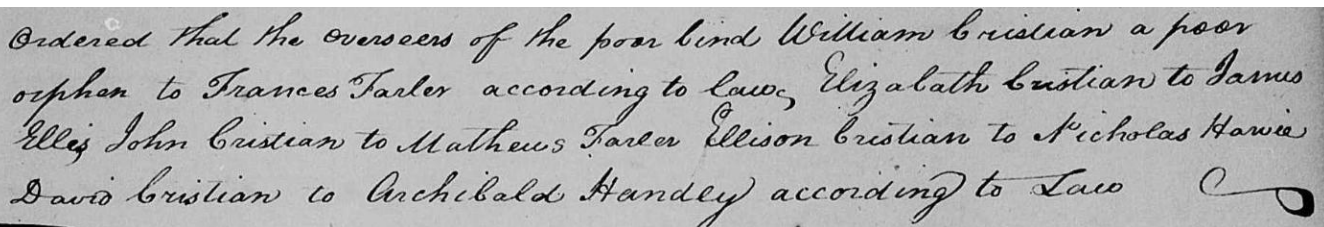 Ordered that the overseers of the poor bind William Cristian a poor
orphen to Frances Farler according to law, Elizabath Cristian to James
Ellis John Cristian to Mathews Farler Ellison Cristian to Nicholas Harvie
David Cristian to Archibald Handley according to Law